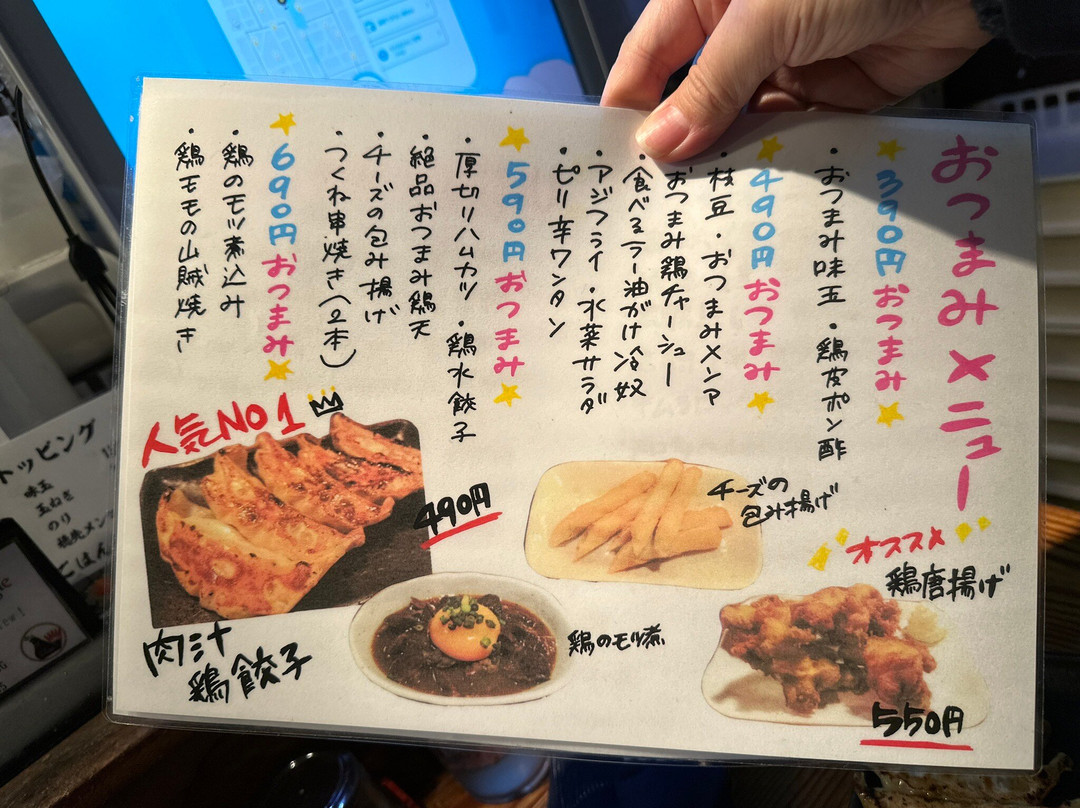 おつまみメニュー
390円おつまみ
・おつまみ味玉・鶏皮ポン酢
490円おつまみ
・枝豆・おつまみメンマ
おつまみ鶏チャーシュー
・食べるラー油がけ冷奴
・アジフライ・水菜サラダ
・ピリ辛ワンタン
590円おつまみ
・厚切りハムカツ・鶏水餃子
・絶品おつまみ鶏天
・チーズの包み揚げ
・つくね串焼き(2本)
690円おつまみ
・鶏のモツ煮込み
・鶏モモの山賊焼き
人気NO1
490円
肉汁
鶏餃子
チーズの
包み揚げ
鶏のモツ煮
オススメ
鶏唐揚げ
550円
トッピング
味玉
玉ねぎ
のり